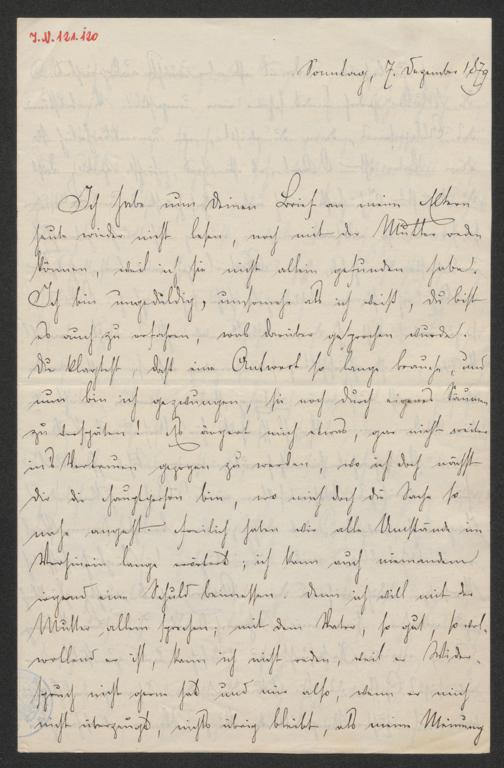 J.N. 121.120
Sonntag, 7. Dezember 1879
Ich habe nun Deinen Brief an meine Aeltern
heute wieder nicht lesen, noch mit der Mutter reden
können, weil ich sie nicht allein gefunden habe.
Ich bin ungeduldig, umsomehr als ich weiß, Du bist
es auch zu erfahren, was darüber gesprochen wurde.
Du klagtest, daß eine Antwort so lange brauche, und
nun bin ich gezwungen, sie noch durch eigenes Säumen
zu verspäten! Es ärgert mich etwas, gar nicht weiter
ins Vertrauen gezogen zu werden, wo ich doch nächst
Dir die Hauptperson bin, wo mich doch die Sache so
nahe angeht. Freilich haben wir alle Umstände im
Vorhinein lange erörtert; ich kann auch niemandem
irgend eine Schuld beimessen. Denn ich will mit der
Mutter allein sprechen; mit dem Vater, so gut, so wol-
wollend er ist, kann ich nicht reden, weil er Wider-
spruch nicht gerne hat und mir also, wenn er mich
nicht überzeugt, nichts übrig bleibt, als meine Meinung